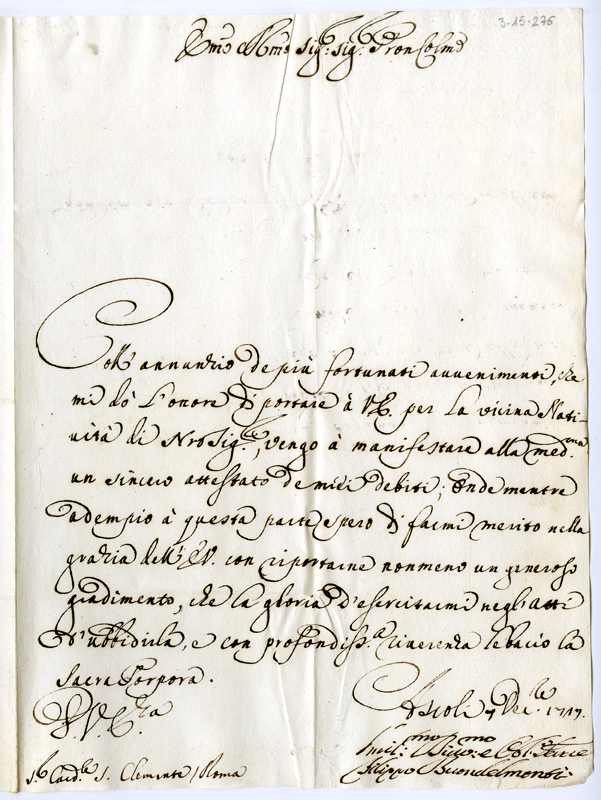 3-15-276
Emo e Rmo Sig:r Sig:r Pron Colmo
Coll' annunzio de più fortunati avvenimenti, che
mi dò l'onore di portare à V.E. per la vicina Nati-
vità di Nro Sig:re, vengo à manifestare alla med:ma
un sincero attestato de miei debiti; onde mentre
adempio à questa parte spero di farmi merito nella
grazia dell' E.V. con riportarne nonmeno un generoso
gradimento, che la gloria d'esercitarmi negl'atti
d'ubbidirla, e con profondiss:a riverenza le bacio la
Sacra Porpora.
Ascoli 7 Dec:re 1717.
D.V.E:za
Umil:mo Divo:mo e Obl: Serre
Filippo Buondelmonti
Sr Card:le S. Clemente / Roma